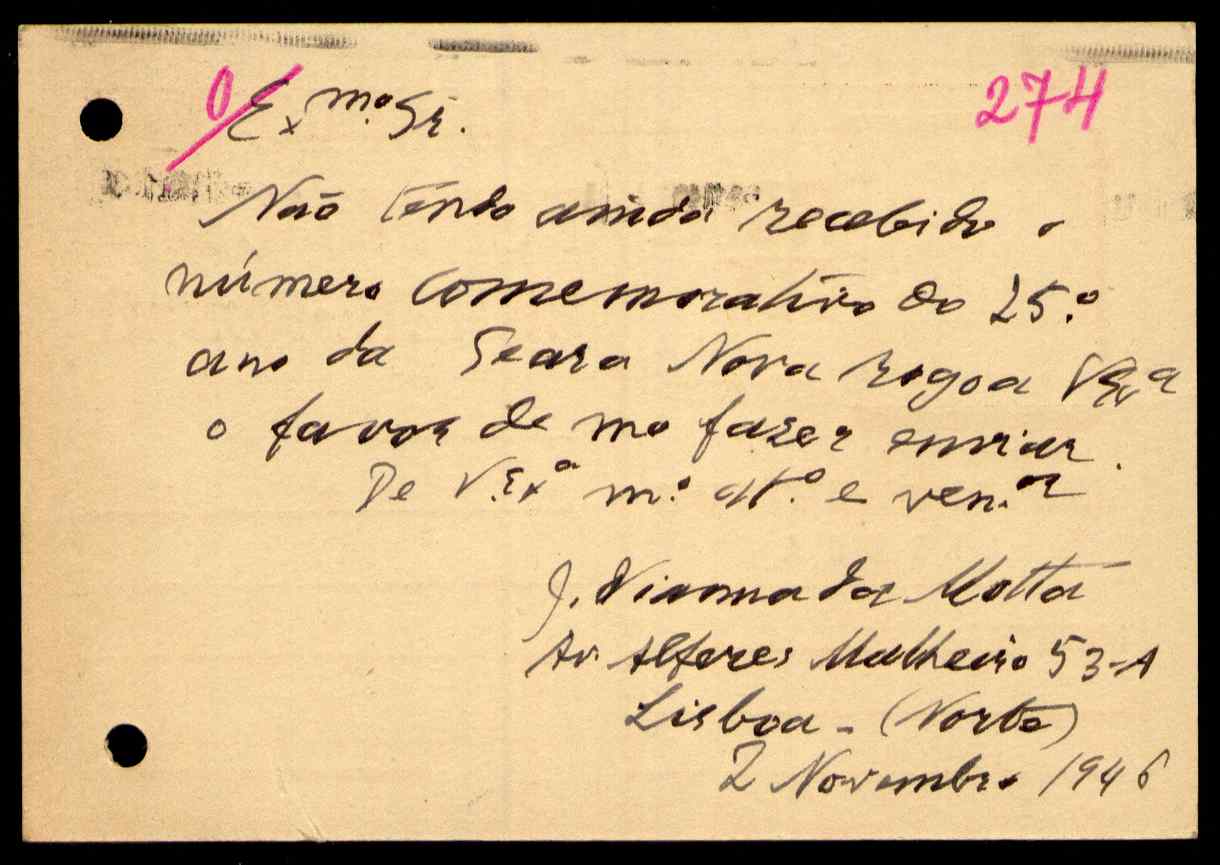 0/ 274
Ex.mo Sr.
Não tendo ainda recebido o
número comemorativo do 25.º
ano da Seara Nova rogo a V. Ex.a
o favor de mo fazer enviar.
De V. Ex.a m.º att.º e ven.or
J. Vianna da Motta
Av. Alferes Malheiro 53-A
Lisboa - (Norte)
2 Novembro 1946